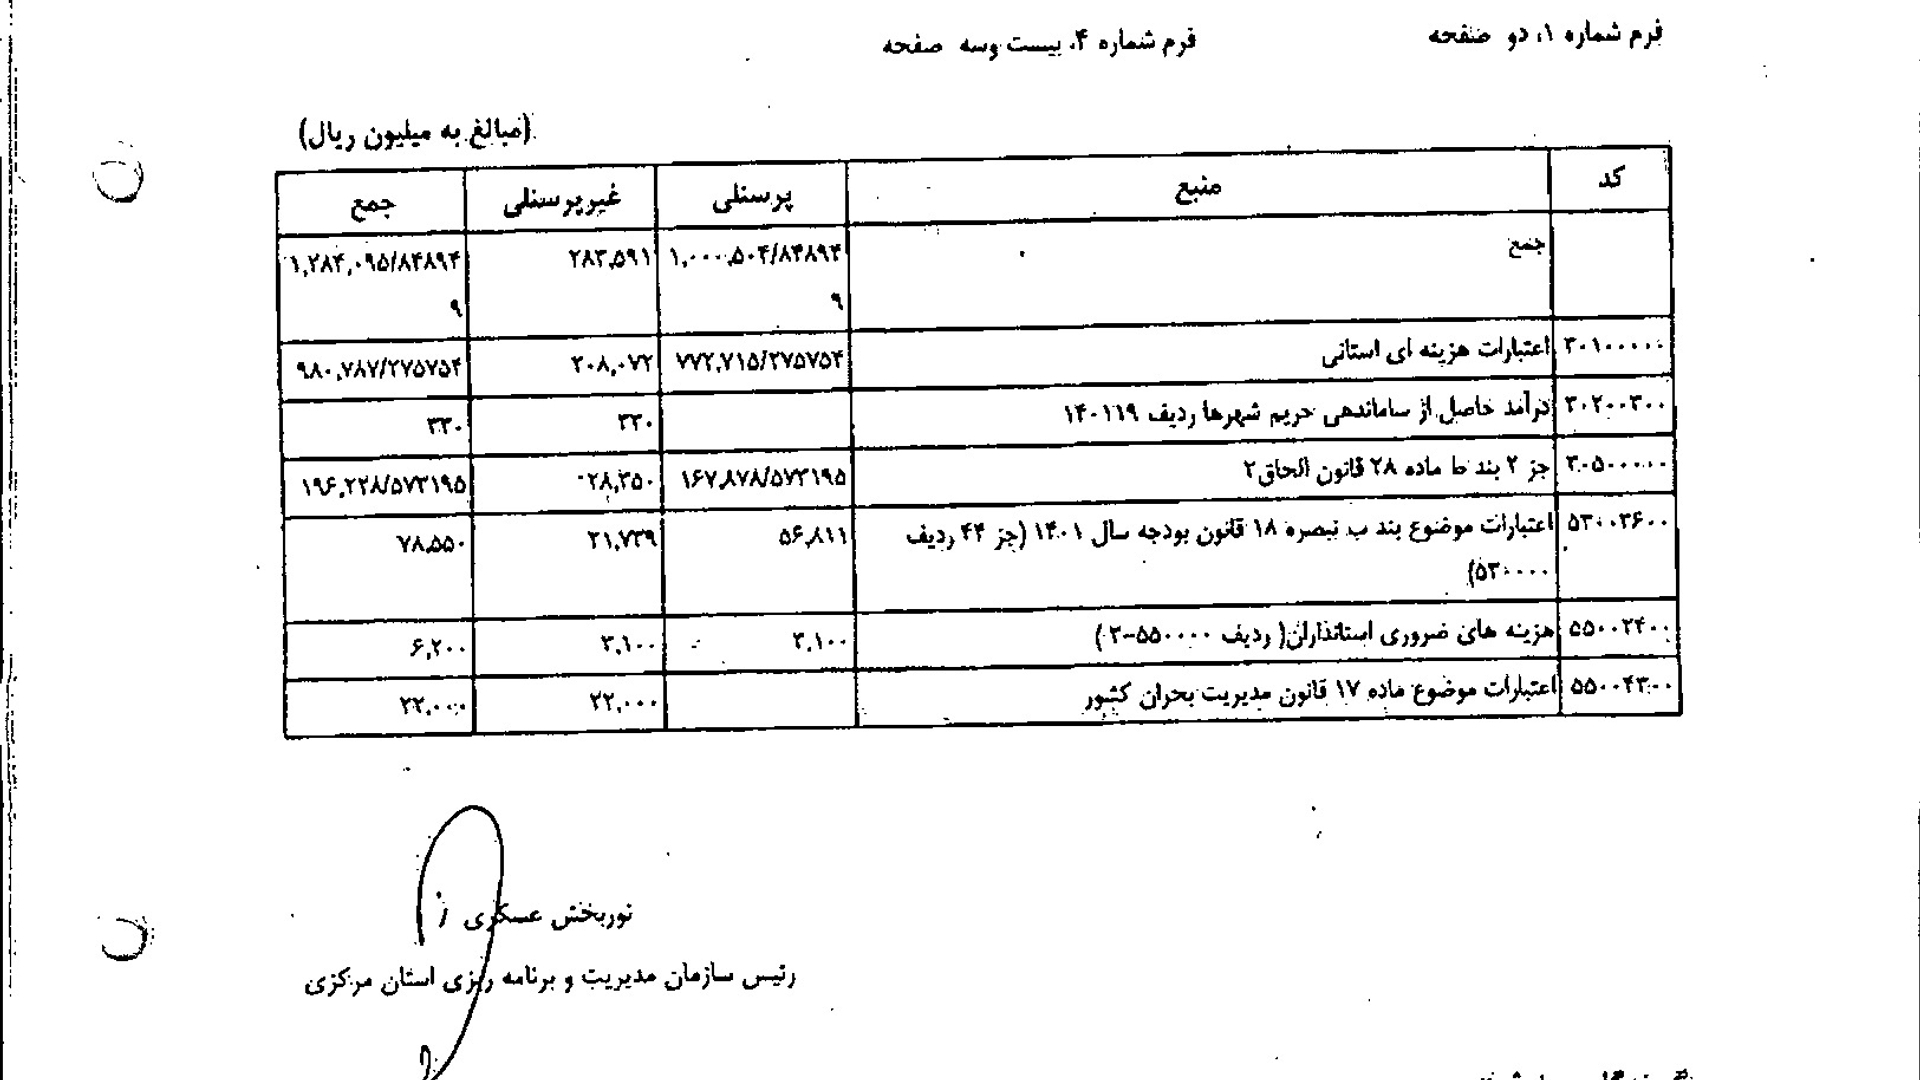 فرم شماره ۱، دو صفحه
فرم شماره ۴، بیست وسه صفحه
(مبالغ به میلیون ریال)
کد منبع پرسنلی غیرپرسنلی جمع
جمع ۱,۰۰۰,۵۰۴/۸۴۸۹۴۹ ۲۸۳,۵۹۱ ۱,۲۸۴,۰۹۵/۸۴۸۹۴۹
۳۰۱۰۰۰۰۰ اعتبارات هزینه ای استانی ۷۷۲,۷۱۵/۲۷۵۷۵۴ ۲۰۸,۰۷۲ ۹۸۰,۷۸۷/۲۷۵۷۵۴
۳۰۲۰۰۳۰۰ درآمد حاصل از ساماندهی حریم شهرها ردیف ۱۴۰۱۱۹ ۳۳۰ ۳۳۰
۳۰۵۰۰۰۰۰ جز ۲ بند ط ماده ۲۸ قانون الحاق۲ ۱۶۷,۸۷۸/۵۷۳۱۹۵ ۲۸,۳۵۰ ۱۹۶,۲۲۸/۵۷۳۱۹۵
۵۳۰۰۳۶۰۰ اعتبارات موضوع بند ب تبصره ۱۸ قانون بودجه سال ۱۴۰۱ (جز ۴۴ ردیف ۵۶,۸۱۱ ۲۱,۷۳۹ ۷۸,۵۵۰
۵۳۰۰۰۰)
۵۵۰۰۲۴۰۰ هزینه های ضروری استانداران( ردیف ۵۵۰۰۰۰-۲ ) ۳,۱۰۰ ۳,۱۰۰ ۶,۲۰۰
۵۵۰۰۴۳۰۰ اعتبارات موضوع ماده ۱۷ قانون مدیریت بحران کشور ۲۲,۰۰۰ ۲۲,۰۰۰
نوربخش عسکری
رئیس سازمان مدیریت و برنامه ریزی استان مرکزی